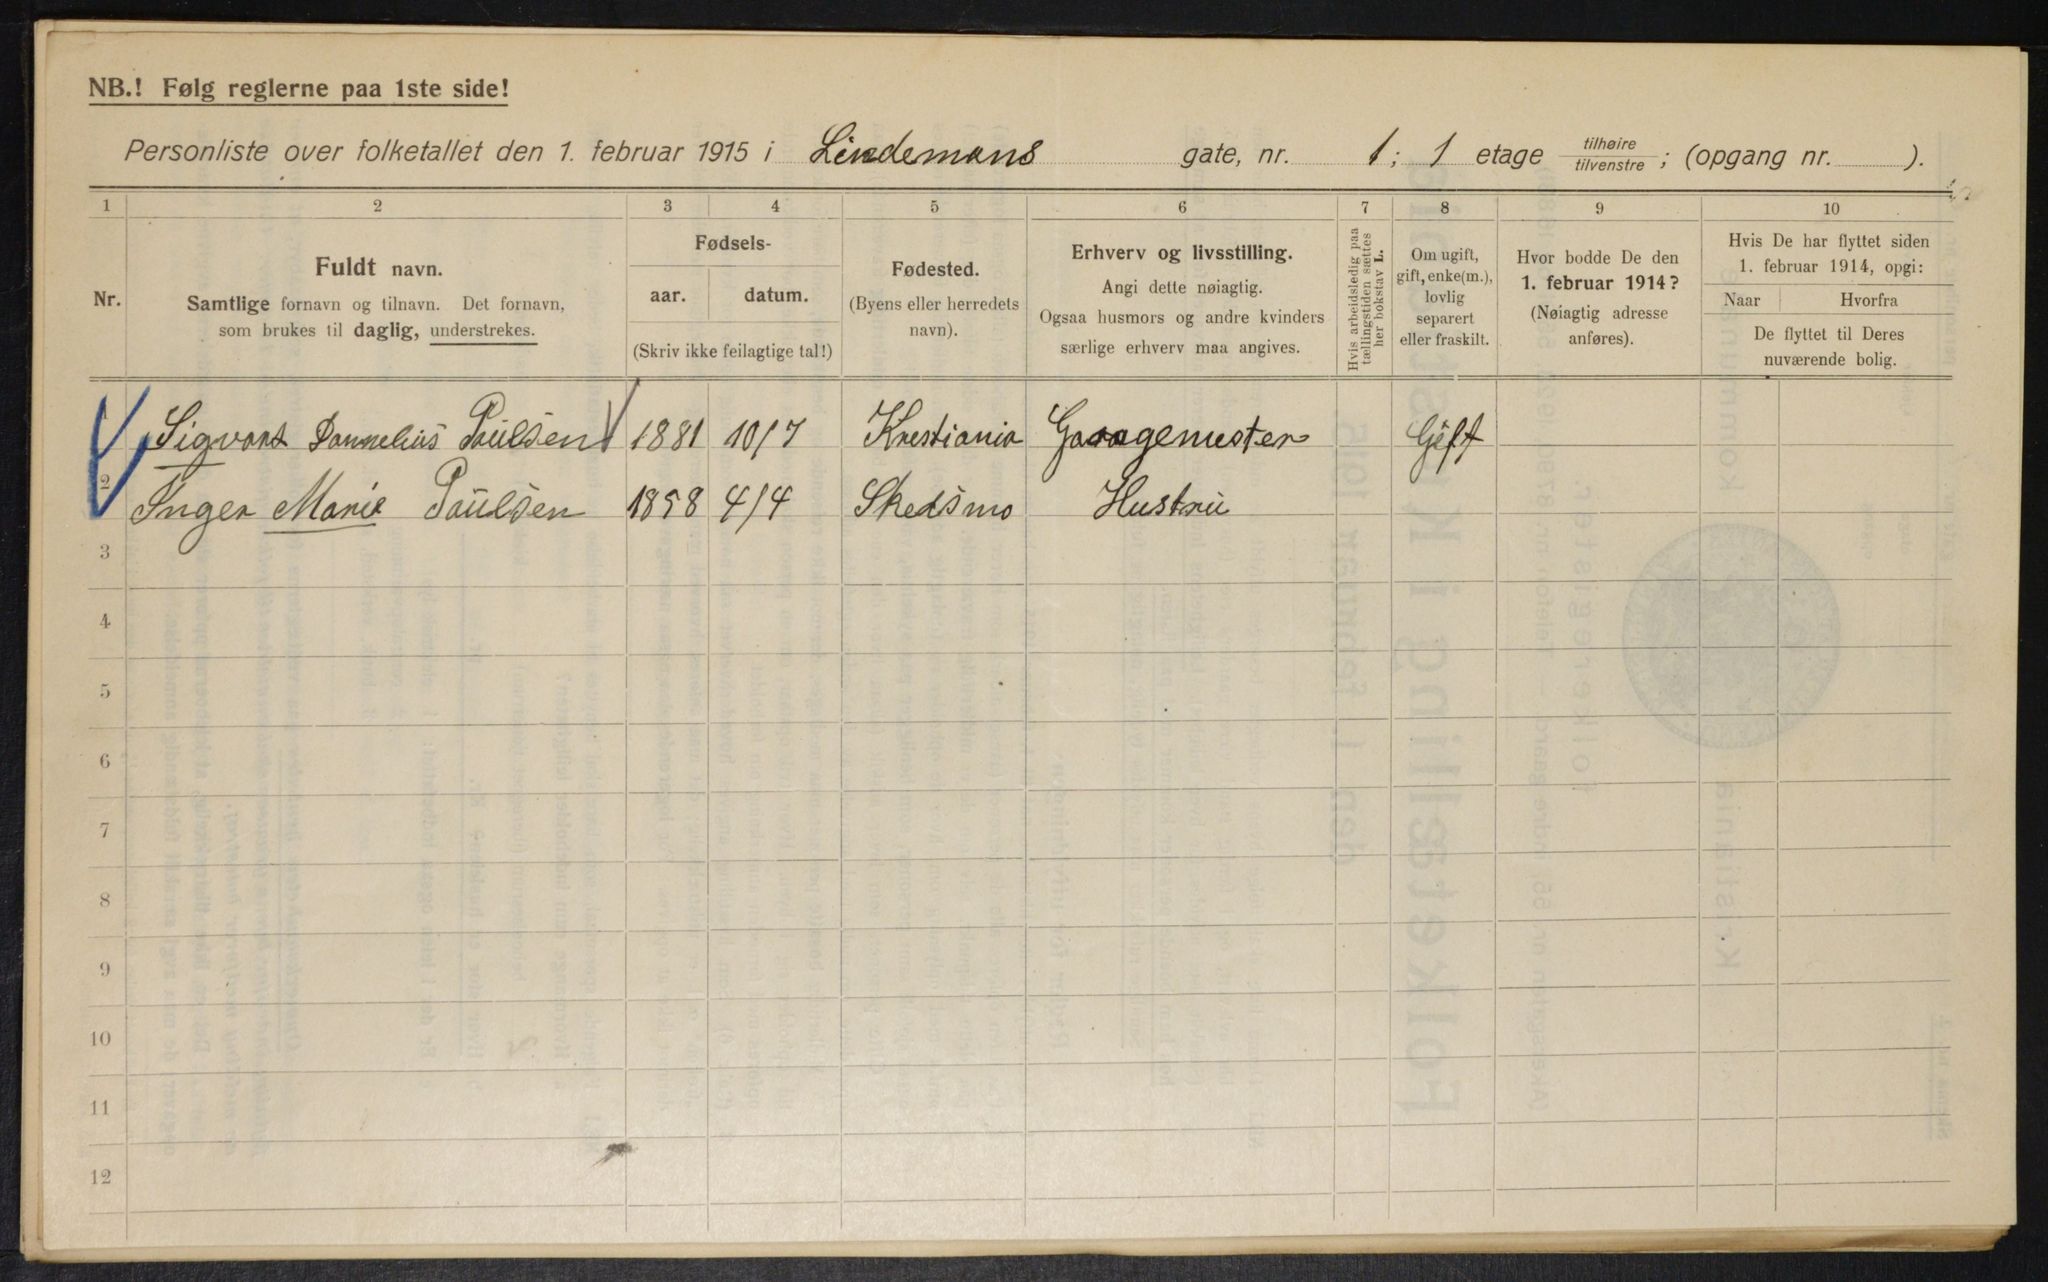 NB.! Følg reglerne paa 1ste side!
Personliste over folketallet den 1. februar 1915 i Lindemans gate, nr. 1; 1 etage tilhøire tilvenstre; (opgang nr. ).
1 2 3 4 5 6 7 8 9 10
Nr.
Fuldt navn.
Samtlige fornavn og tilnavn. Det fornavn,
som brukes til daglig, understrekes.
Fødsels-
aar. datum.
(Skriv ikke feilagtige tal!)
Fødested.
(Byens eller herredets
navn).
Erhverv og livsstilling.
Angi dette nøiagtig.
Ogsaa husmors og andre kvinders
særlige erhverv maa angives.
Hvis arbeidsledig paa
tællingstiden sættes
her bokstav L.
Om ugift,
gift, enke(m.),
lovlig
separert
eller fraskilt.
Hvor bodde De den
1. februar 1914?
(Nøiagtig adresse
anføres).
Hvis De har flyttet siden
1. februar 1914, opgi:
Naar Hvorfra
De flyttet til Deres
nuværende bolig.
Sigvart Paulsen 1881 10/7 Krestiania Garagemester Gift
2 Inger Marie Paulsen 1858 4/4 Skedsmo Hustru
3
4
5
6
7
8
9
10
11
12